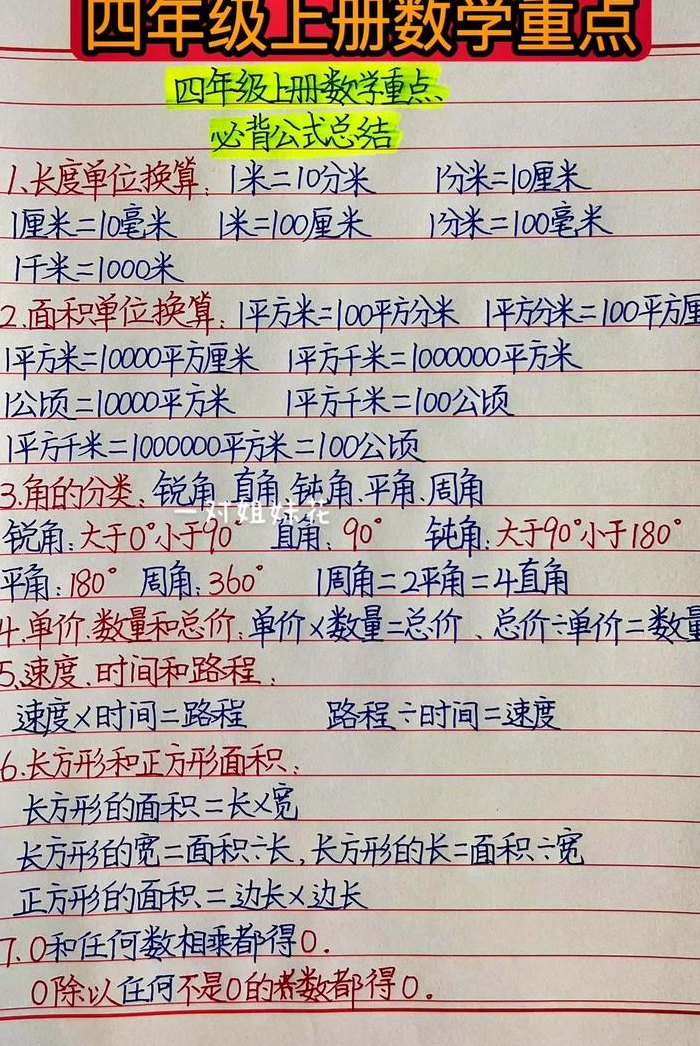 四年级上册数学重点
四年级上册数学重点
必背公式总结
1、长度单位换算：1米=10分米 1分米=10厘米
1厘米=10毫米 1米=100厘米 1分米=100毫米
1千米=1000米
2.面积单位换算：1平方米=100平方分米 1平方分米=100平方厘
1平方米=10000平方厘米 1平方千米=1000000平方米
1公顷=10000平方米 1平方千米=100公顷
1平方千米=1000000平方米=100公顷
3.角的分类：锐角.直角.钝角.平角.周角
一对姐妹花
锐角：大于0°小于90° 直角：90° 钝角：大于90°小于180°
平角：180° 周角：360° 1周角=2平角=4直角
4.单价.数量和总价：单价×数量=总价、总价÷单价=数量
5、速度、时间和路程：
速度×时间=路程 路程÷时间=速度
6.长方形和正方形面积：
长方形的面积=长×宽
长方形的宽=面积÷长，长方形的长=面积÷宽
正方形的面积=边长×边长
7.0和任何数相乘都得0.
0除以任何不是0的数都得0。